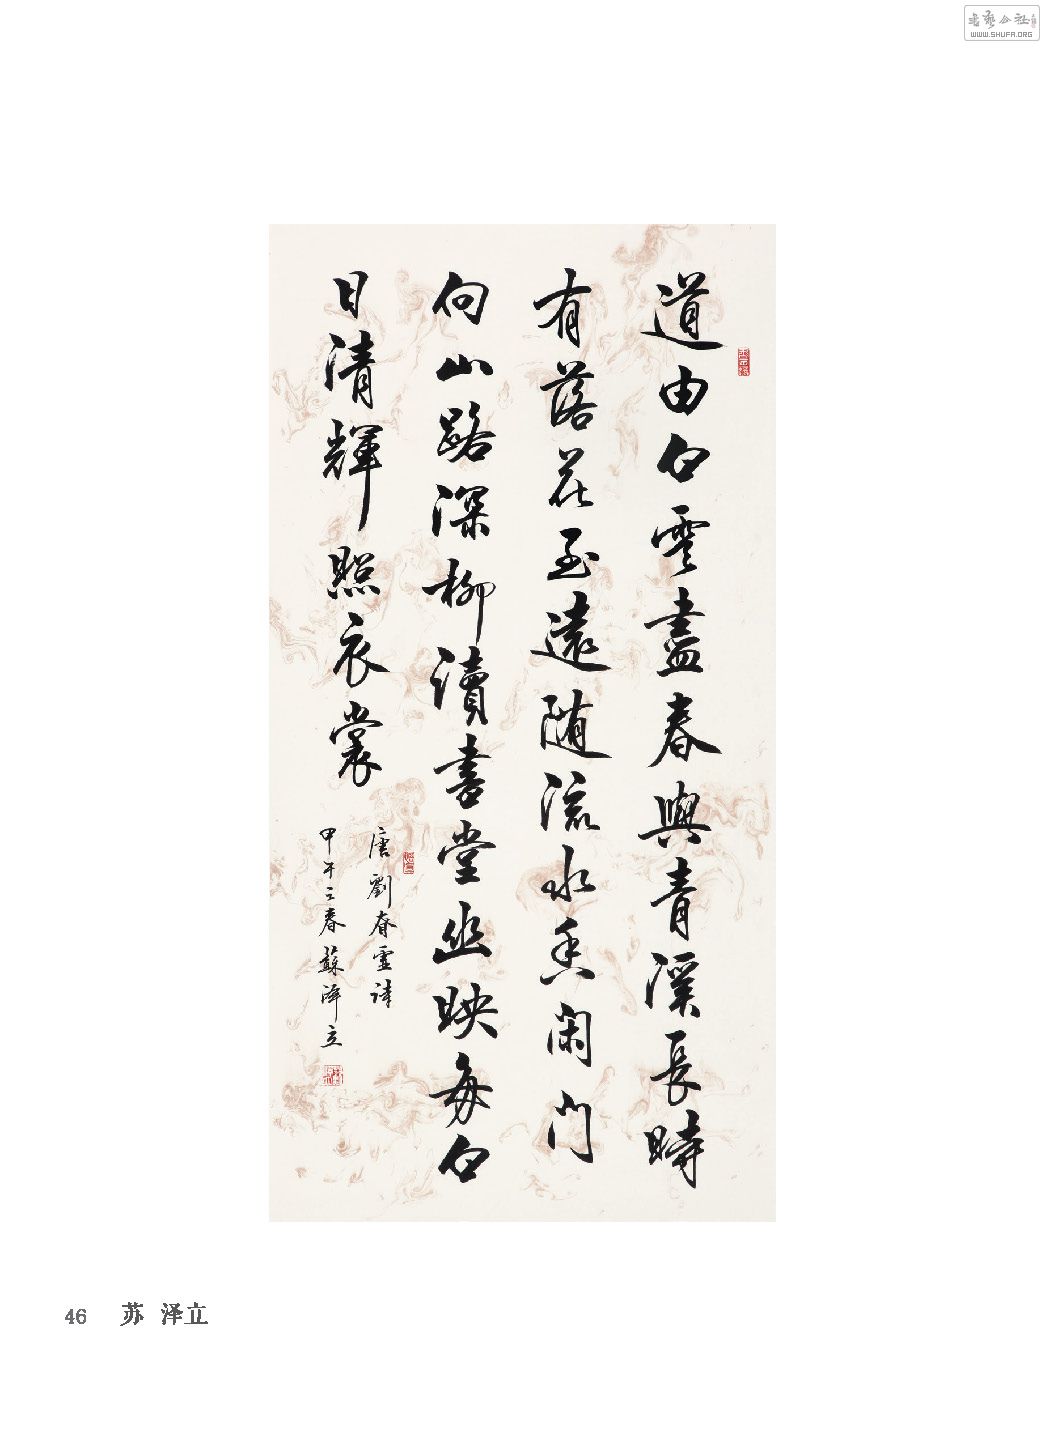 書藝公社
WWW.SHUFA.ORG
道由白雲盡春與青溪長時
有落花至遠随流水香闲門
向山路深柳讀書堂幽映每白
日清輝照衣裳
唐劉眘虛詩
甲午之春蘇澤立
46 苏 泽立